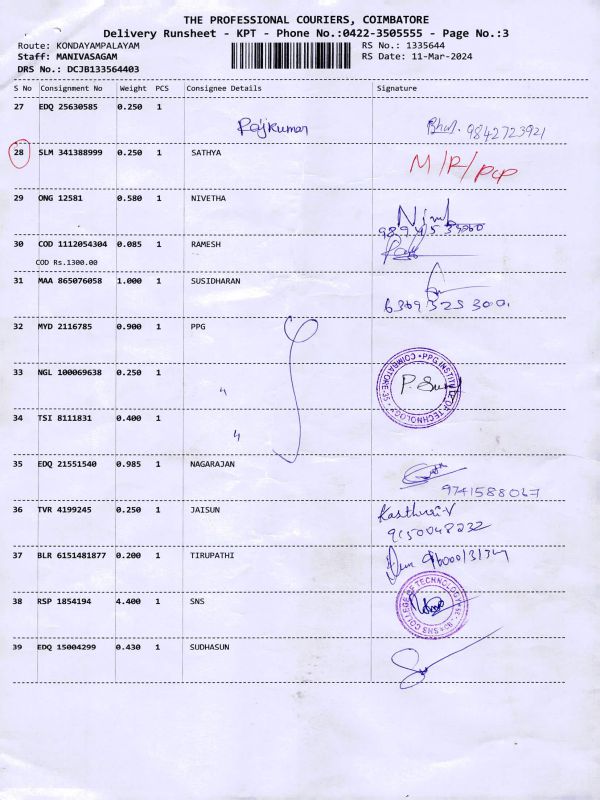 THE PROFESSIONAL COURIERS, COIMBATORE
Delivery Runsheet - KPT - Phone No.:0422-3505555 - Page No.:3
Route: KONDAYAMPALAYAM RS No.: 1335644
Staff: MANIVASAGAM RS Date: 11-Mar-2024
DRS No.: DCJB133564403
S No Consignment No Weight PCS Consignee Details Signature
27 EDQ 25630585 0.250 1
Rajkumar 9842723921
28 SLM 341388999 0.250 1 SATHYA M/R/PCP
29 ONG 12581 0.580 1 NIVETHA
30 COD 1112054304 0.085 1 RAMESH
COD Rs.1300.00
31 MAA 865076058 1.000 1 SUSIDHARAN
6369325300
32 MYD 2116785 0.900 1 PPG
33 NGL 100069638 0.250 1 "
PPG INSTITUTE OF TECHNOLOGY COIMBATORE-35
34 TSI 8111831 0.400 1 "
35 EDQ 21551540 0.985 1 NAGARAJAN
9741588067
36 TVR 4199245 0.250 1 JAISUN Kasthuri.V
9150048232
37 BLR 6151481877 0.200 1 TIRUPATHI
38 RSP 1854194 4.400 1 SNS
SNS COLLEGE OF TECHNOLOGY
39 EDQ 15004299 0.430 1 SUDHASUN